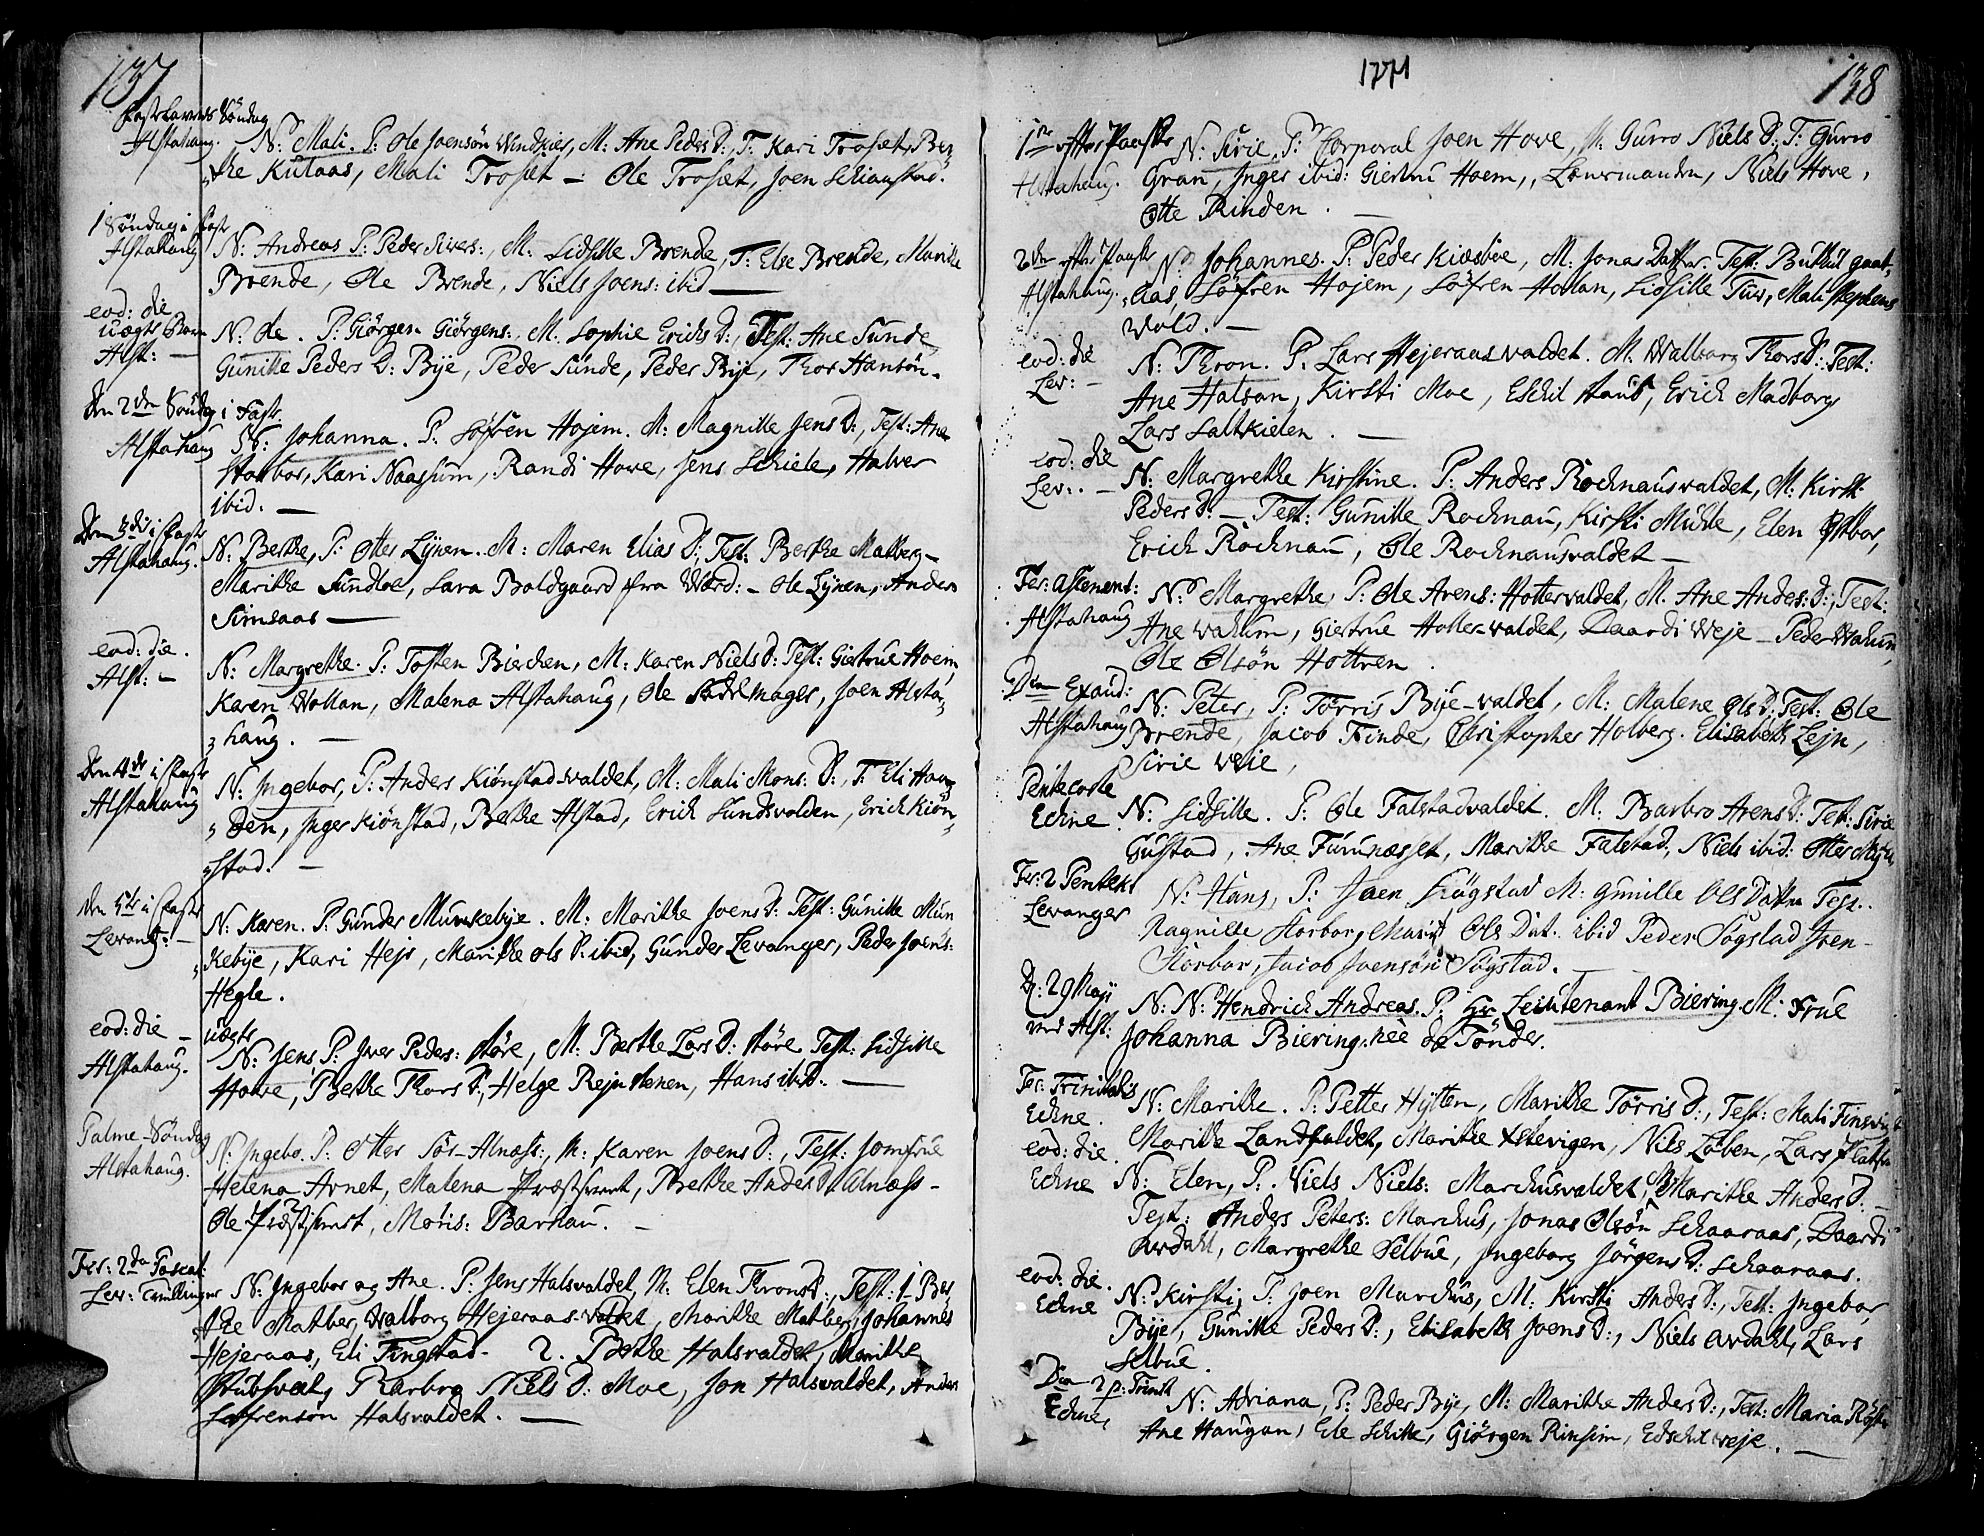 137
Fastelavens Söndag
Alstahaug. N: Mali. P: Ole Joensön Windkier, M: Ane Peders D:, T: Kari Trosæt, Ber
the Kulaas, Mali Trosæt -: Ole Trosæt, Joen Schianstad.
1 Söndag i Fast
Alstahaug N: Andreas P: Peder Sivers:, M: Lidsille Brende, T: Else Brende, Marithe
Brende, Ole Brende, Niels Joens: ibid
eod: die
uægte Barn
Alst: — N: Ole. P: Giörgen Giörgens:, M. Sophie Erichs D:, Test: Ane Sunde,
Gunille Peders D: Bÿe, Peder Sunde, Peder Bÿe, Thor Hansön.
den 2den Söndag i Fast
Alstahaug N: Johanna. P: Söfren Hojem. M: Magnille Jens D:, Test: Ane
Storbor, Kari Naassum, Randi Hove, Jens Schiele, Halver
ibid. —
Den 3die i Fast
Alstahaug. N: Berthe, P: Otter Lÿnen. M: Maren Elias D: Test: Berthe Matberg -
Marithe Sundloe, Lara Boldgaard fra Werd: - Ole Lÿnen, Anders
Simsaas —
eod: die.
Alst: — N: Margrethe. P: Tosten Bierchen, M: Karen Niels D: Test: Giertrue Hoem,
Karen Wollan, Malena Alstahaug, Ole Sadelmager, Joen Alsta,
haug. —
den 4de i Fast
Alstahaug N: Ingebor, P: Anders Kiönstadsvaldet, M: Mali Mons: D:, T: Eli Haug
den, Inger Kiönstad, Berthe Alstad, Erich Sundsvalden, Erich Kiön,
stad. —
den 5te i Fast
Levang: — N: Karen. P: Gunder Munkebÿe. M: Marithe Joens D: Test: Gunille Mun
kebÿe, Kari Hejr, Marithe Ols D: ibid, Gunder Levanger, Peder Joens:
Hegle.
eod: die — uægte
Alstahaug. N: Jens P: Iver Peders: Störe, M: Berthe Lars D: Störe, Test: Lidsille
Howe, Berthe Thors D:, Helge Rejnstenen, Hans ibid:. —
Palme-Söndag
Alstahaug. N: Ingebo. P: Otter Sör-Alnæss:, M: Karen Joens D:, Test: Jomfrue
Helena Arnet, Malena Præstsvent, Berthe Anders D: Alnæss -
Ole Præstsvent, Moris: Barhau. —
Fer: 2da Pascat:
Lev: Tvillinger N: Ingebor og Ane. P: Jens Halsvaldet, M: Elen Throns D:, Test: 1. Ber
the Matber, Walborg Hejeraas-valdet, Marithe Matber, Johannes
Hejeraas, Eli Fingstad. 2. Berthe Halsvaldet, Marithe
Stubsveet, Barbra Niels D: Moe, Jon Halsvaldet, Anders
Söfrensön Halsvaldet. —
1771
138
1ste efter Paaske
Alstahaug. N: Sirie, P: Corporal Joen Howe, M: Gurro Niels D:, T: Gurro
Gran, Inger ibid: Giertru Hoem, Lensmanden, Niels Hove,
Otte Rinden. —
2den efter Paaske
Alstahaug. N: Johannes. P: Peder Kiesboe, M: Jonas Datter. Test: Buthil Gaat,
aas, Söfren Hojem, Söfren Hollan, Lidsille Tuv, Mali Stephens
Wold. —
eod: die
Lev: — N: Thron. P: Lars Hejeraasvaldet. M: Walborg Thors D: Test:
Ane Halsan, Kirsti Moe, Eschil Staub, Erich Madborg
Lars Saltkielen. —
eod: die
Lev: — N: Margrethe Kirstine. P: Anders Rochnausvaldet, M: Kirsti
Peders D: — Test: Gunille Rochnau, Kirsti Muhle, Elen Ostbor,
Erich Rochnau, Ole Rochnausvaldet —
Fer: Ascensent:
Alstahaug N: Margrethe, P: Ole Arens: Hottervaldet, M: Ane Anders: D:, Test:
Ane Wahum, Giertrue Holler-valdet, Daardi Weje — Peder Wahum,
Ole Olsön Hottren.
Dom Exaud:
Alstahaug N: Peter, P: Törris Bÿe-valdet, M: Malene Ols D: Test: Ole
Brende, Jacob Finde, Christopher Holberg. Elisabeth Lejn,
Sirie Veie,
Pentecoste
Echne. N: Lidsille. P: Ole Falstadvaldet. M: Barbro Arens D: Test: Sirie
Gustad, Ane Furunæsset, Marithe Falstad, Niels ibid: Otter
Fer: 2 Pentek:
Levanger N: Hans, P: Joen Sögstad M: Gunille Ols Datter Test:
Ragnille Storbor, Marit Ols Dat. ibid Peder Sögstad Joen —
Storbor, Jacob Joensön Sögstad.
D: 29 Maji
ved Alst: N: N: Hendrich Andreas. P: Hr Leiutenant Biering M: Frue
Johanna Biering, née de Tönder.
Fer: Trinitatis
Echne. N: Marithe. P: Petter Hÿtten, Marithe Törris D:, Test: Mali Finsvig
Marithe Landfaldet, Marithe Stevigen, Nils Löben, Lars
eod: die.
Echne N: Elen, P: Niels Niels: Marchusvaldet, M: Marithe Anders D: —
Test: Anders Peters: Marchus, Jonas Olsön Schaaraas, Daardi
Ardahl, Margrethe Selbue, Ingeborg Jörgens D: Schaaraas.
eod: die.
Echne N: Kirsti, P: Joen Marchus, M: Kirsti Anders D:, Test: Ingebor,
Bÿe, Gunille Peders D:, Elisabeth Joens D:, Niels Ardahl, Lars
Selbue.
Dom 2 p: Trinit
Echne, N: Adriana, P: Peder Bÿe, M: Marithe Anders D:, Test: Maria
Ane Haugan, Ele Schille, Giörgen Rinsim, Edschil Weje. —